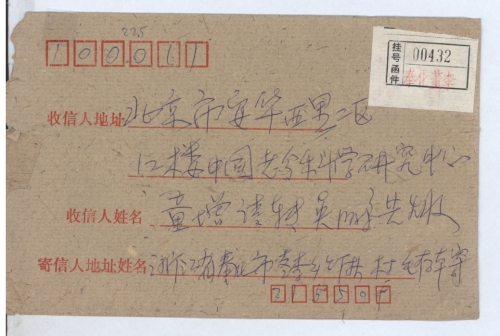 275
100011
挂号函件
00432
奉化董李
收信人地址 北京市安华西里二区
12楼中国老龄科学研究中心
收信人姓名 童增请转 先生收
寄信人地址姓名 浙江省奉化市董李乡 村 寄
315501